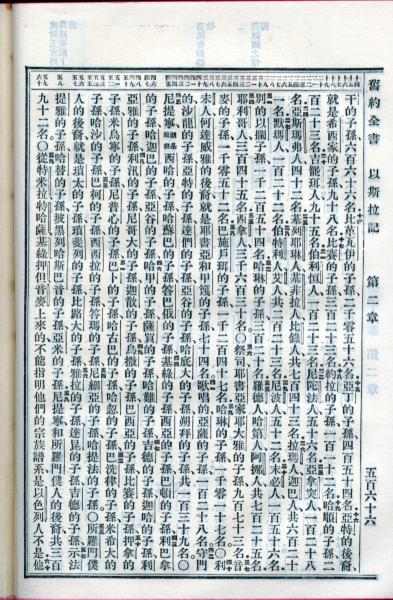 舊約全書 以斯拉記 第二章 五百六十六
干的子孫六百六十六名比革瓦伊的子孫二千零五十六名亞丁的子孫四百五十四名亞特的後裔
就是希西家的子孫九十八名比賽的子孫三百二十三名約拉的子孫一百一十二名哈順的子孫二
百二十三名吉罷珥人九十五名伯利恒人一百二十三名尼陀法人五十六名亞拿突人一百二十八
名亞斯瑪弗人四十二名基列耶琳人基非拉人比錄人共七百四十三名拉瑪人迦巴人共六百二十
一名默瑪人一百二十二名伯特利人艾人共二百二十三名尼波人五十二名末必人一百五十六名
別的以攔子孫一千二百五十四名哈琳的子孫三百二十名羅德人哈第人阿挪人共七百二十五名
耶利哥人三百四十五名西拿人三千六百三十名○祭司耶書亞家耶大雅的子孫九百七十三名音
麥的子孫一千零五十二名巴施戶珥的子孫一千二百四十七名哈琳的子孫一千零一十七名○利
未人何達威雅的後裔就是耶書亞和甲篾的子孫七十四名歌唱的亞薩的子孫一百二十八名守門
的沙龍的子孫亞特的子孫達們的子孫亞谷的子孫哈底大的子孫朔拜的子孫共一百三十九名○
尼提寧西哈的子孫哈蘇巴的子孫答巴俄的子孫基綠的子孫西亞的子孫巴頓的子孫利巴拿
的子孫哈迦巴的子孫亞谷的子孫哈甲的子孫薩買的子孫哈難的子孫吉德的子孫迦哈的子孫利
亞雅的子孫利汛的子孫尼哥大的子孫迦散的子孫烏撒的子孫巴西亞的子孫比賽的子孫押拿的
子孫米烏寧的子孫尼普心的子孫巴卜的子孫哈古巴的子孫哈忽的子孫巴洗律的子孫米希大的
子孫哈沙的子孫巴柯的子孫西西拉的子孫答瑪的子孫尼細亞的子孫哈提法的子孫○所羅門僕
人的後裔就是瑣太的子孫瑣斐列的子孫比路大的子孫雅拉的子孫達昆的子孫吉德的子孫示法
提雅的子孫哈替的子孫玻黑列哈斯巴音的子孫亞米的子孫尼提寧和所羅門僕人的後裔共三百
九十二名○從特米拉特哈薩基綠押但音麥上來的不能指明他們的宗族譜系是以色列人不是他